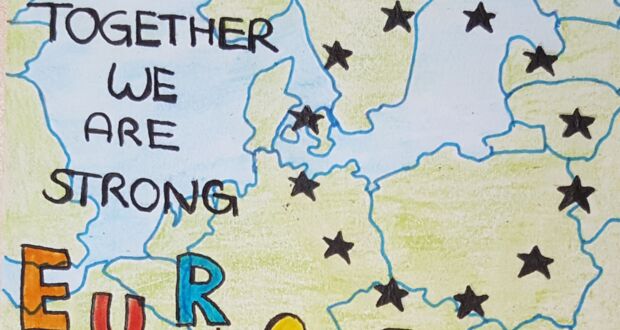 TOGETHER
WE
ARE
STRONG
EUR